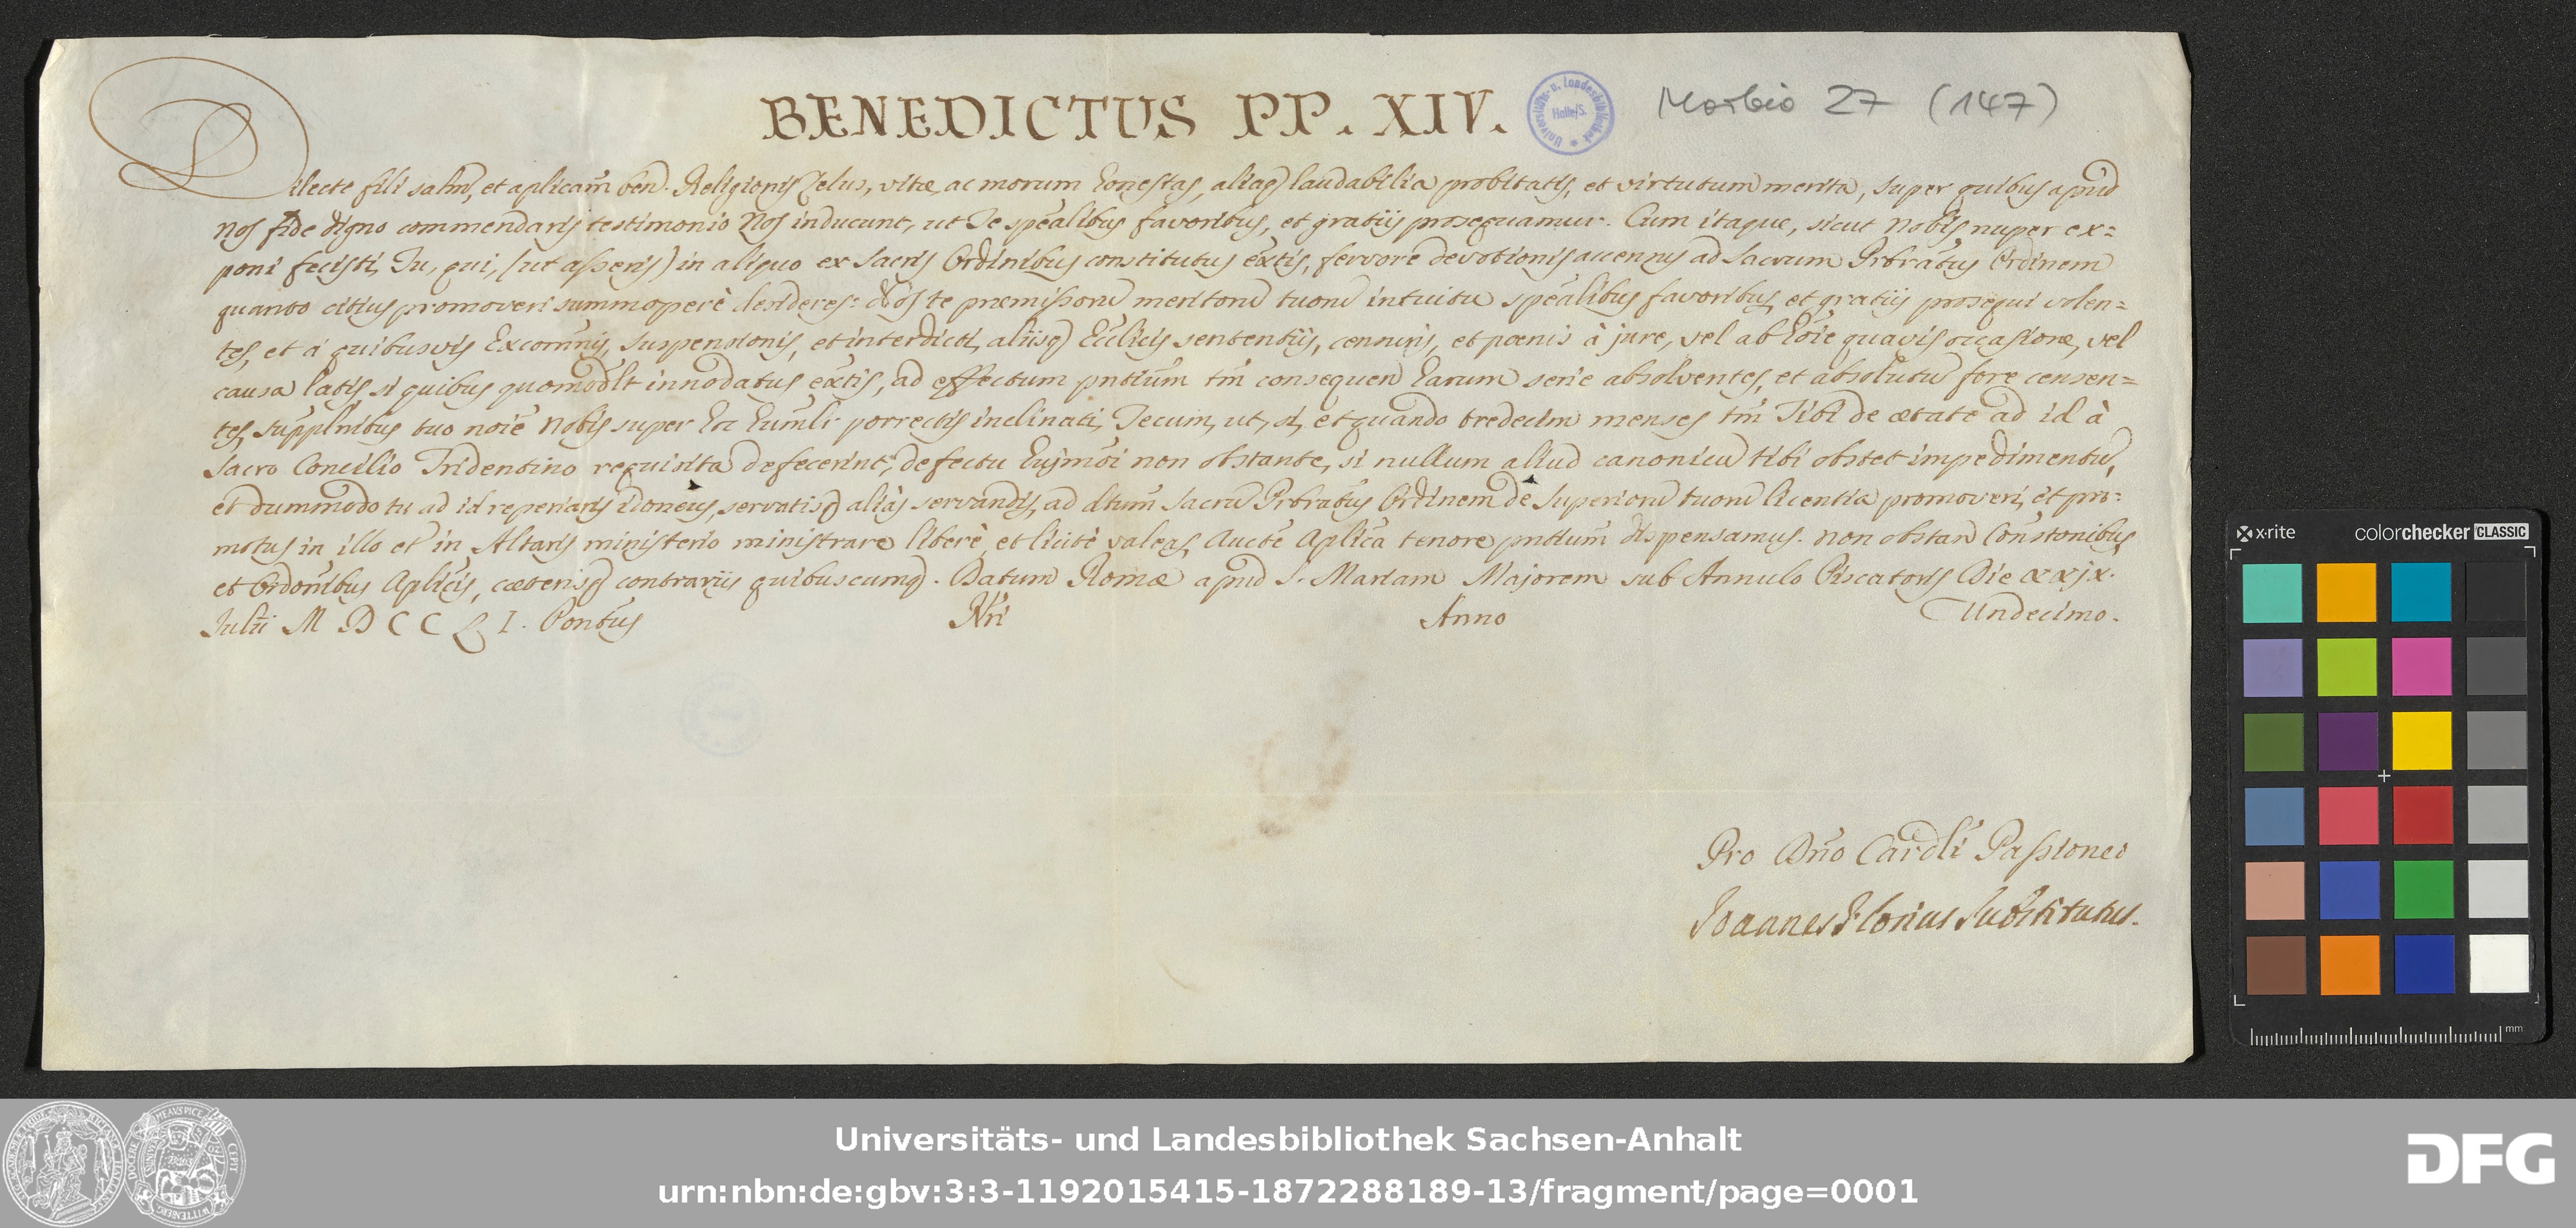 BENEDICTUS PP. XIV.
Universitäts- u. Landesbibliothek
Halle/S.
Morbio 27 (147)
Dilecte fili salm̄, et aplicam̄ ben̄. Religionis zelus, vitæ, ac morum honestas, aliaq laudabilia probitatis, et virtutum merita, super quibus apud
nos fide digno commendaris testimonio Nos inducunt, ut Te spēalibus favoribus, et gratiis prosequamur. Cum itaque, sicut Nobis nuper ex=
poni fecisti, Tu, qui, (ut asseris) in aliquo ex Sacris Ordinibus constitutus ex̄tis, fervore devotionis accensus ad Sacrum Prbrātus Ordinem
quanto citius promoveri summoperè desideres: Nos te præmissorū meritorū tuorū intuitu spēalibus favoribus, et gratiis prosequi volen=
tes, et à quibusvis Excom̄nis, suspensionis, et interdicti, aliisq Ecc̄licis sententiis, censuris, et pœnis à jure, vel ab hōie quavis occasione, vel
causa latis, si quibus quomodlt innodatus ex̄tis, ad effectum pntium̄ tm̄ consequen̄ harum serie absolventes, et absolutū fore censen=
tes, supplnibus tuo noīe Nobis super hoc humīlr porrectis inclinati, Tecum, ut, si, et quando tredecim menses tm̄ Tibi de ætate ad id à
Sacro Concilio Tridentino requisita defecerint, defectu hujmōi non obstante, si nullum aliud canonicū tibi obstet impedimentū,
et dummodo tu ad id reperiaris idoneus, servatisq aliàs servandis, ad dtum̄ Sacrū Prbrātus Ordinem de Superiorū tuorū licentia promoveri, et pro-
motus in illo et in Altaris ministerio ministrare liberè, et licitè valeas, Auctē Aplicā tenore pntium̄ dispensamus. Non obstan̄ Constōnibus,
et Ordōnibus Aplicis, cæterisq contrariis quibuscumq. Datum Romæ apud S. Mariam Majorem sub Annulo Piscatoris Die xxjx.
Julii M D C C L I. Pontūs Nri Anno Undecimo.
Pro Dn̄o Cardli Passioneo
Joannes Florius Substitutus.
x-rite colorchecker CLASSIC
mm
Universitäts- und Landesbibliothek Sachsen-Anhalt
urn:nbn:de:gbv:3:3-1192015415-1872288189-13/fragment/page=0001
DFG